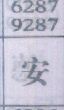 6287
9287
安